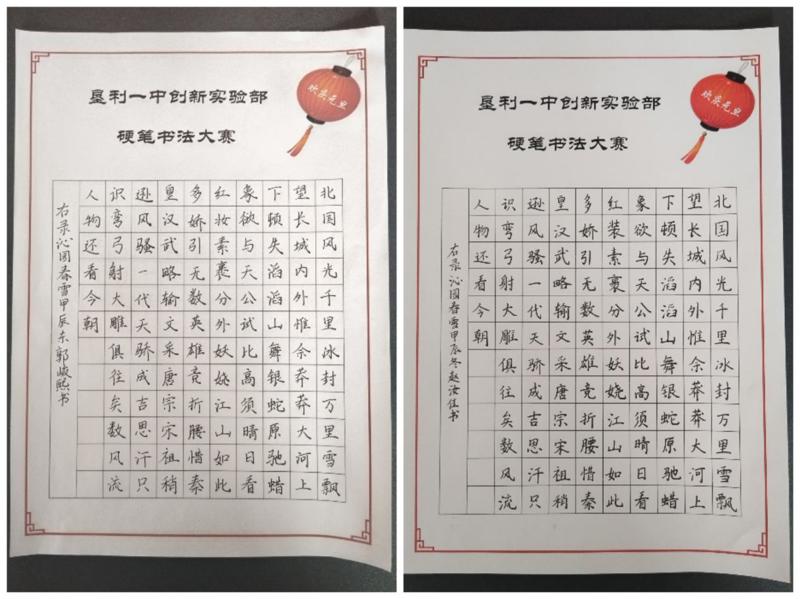 垦利一中创新实验部
硬笔书法大赛
欢庆元旦
北国风光千里冰封万里雪飘
望长城内外惟余莽莽大河上
下顿失滔滔山舞银蛇原驰蜡
象欲与天公试比高须晴日看
红妆素裹分外妖娆江山如此
多娇引无数英雄竞折腰惜秦
皇汉武略输文采唐宗宋祖稍
逊风骚一代天骄成吉思汗只
识弯弓射大雕俱往矣数风流
人物还看今朝
右录沁园春雪甲辰东郭峻熙书
垦利一中创新实验部
硬笔书法大赛
欢庆元旦
北国风光千里冰封万里雪飘
望长城内外惟余莽莽大河上
下顿失滔滔山舞银蛇原驰蜡
象欲与天公试比高须晴日看
红装素裹分外妖娆江山如此
多娇引无数英雄竞折腰惜秦
皇汉武略输文采唐宗宋祖稍
逊风骚一代天骄成吉思汗只
识弯弓射大雕俱往矣数风流
人物还看今朝
右录沁园春雪甲辰冬赵汝佳书